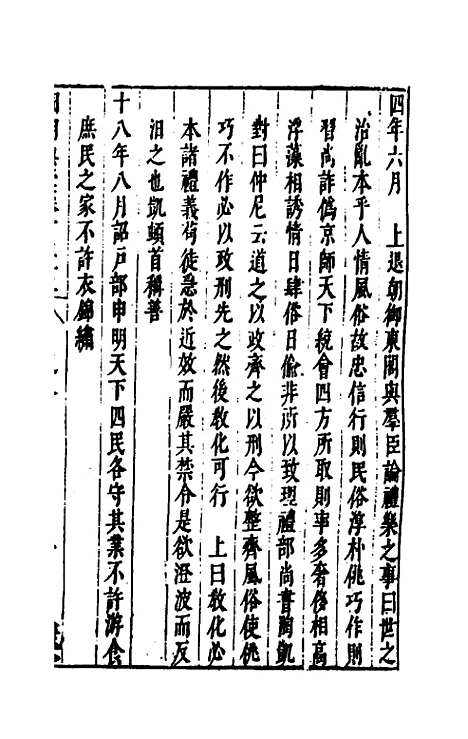 四年六月　上退朝御東閣與羣臣論禮樂之事曰世之
治亂本乎人情風俗故忠信行則民俗淳朴佻巧作則
習尚詐僞京師天下統會四方所取則事多奢侈相高
浮藻相誘情日肆俗日偷非所以致理禮部尚書陶凱
對曰仲尼云道之以政齊之以刑今欲整齊風俗使佻
巧不作必以政刑先之然後敎化可行　上曰敎化必
本諸禮義苟徒急於近效而嚴其禁令是欲澄波而反
汨之也凱頓首稱善
十八年八月詔戶部申明天下四民各守其業不許游食
庶民之家不許衣錦繡